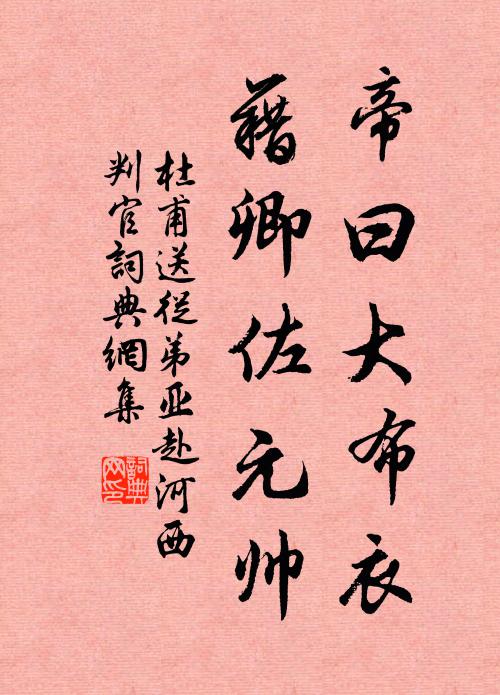 帝曰大布衣
藉卿佐元帅
杜甫送従弟亚赴河西
判官詞典網集
詞典
网印